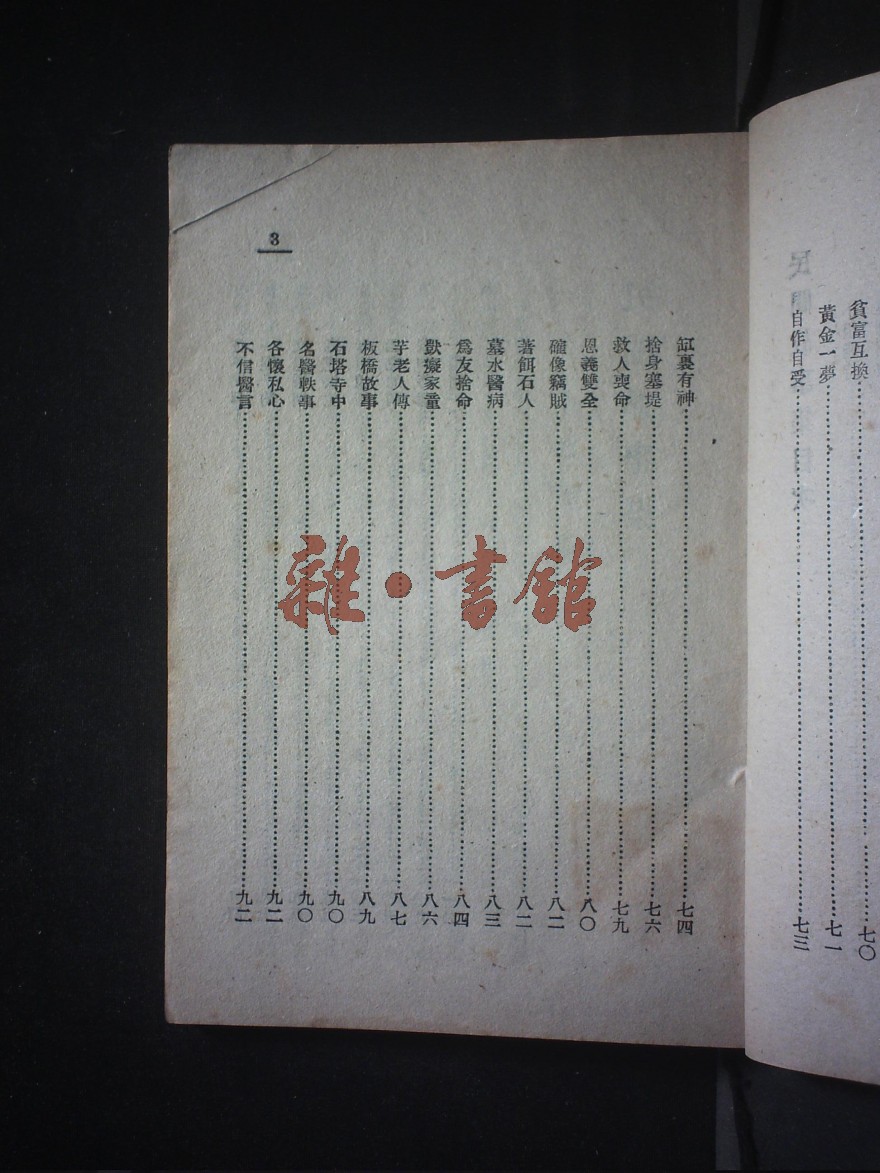 貧富互換⋯⋯七〇
黃金一夢⋯⋯七一
自作自受⋯⋯七三
3
缸裏有神⋯⋯七四
捨身塞堤⋯⋯七六
救人喪命⋯⋯七九
恩義雙全⋯⋯八〇
礶像竊賊⋯⋯八二
著餌石人⋯⋯八二
墓水醫病⋯⋯八三
爲友捨命⋯⋯八四
獃癡家童⋯⋯八六
芋老人傳⋯⋯八七
板橋故事⋯⋯八九
石塔寺中⋯⋯九〇
名醫軼事⋯⋯九〇
各懷私心⋯⋯九二
不信醫言⋯⋯九二
雜·書館